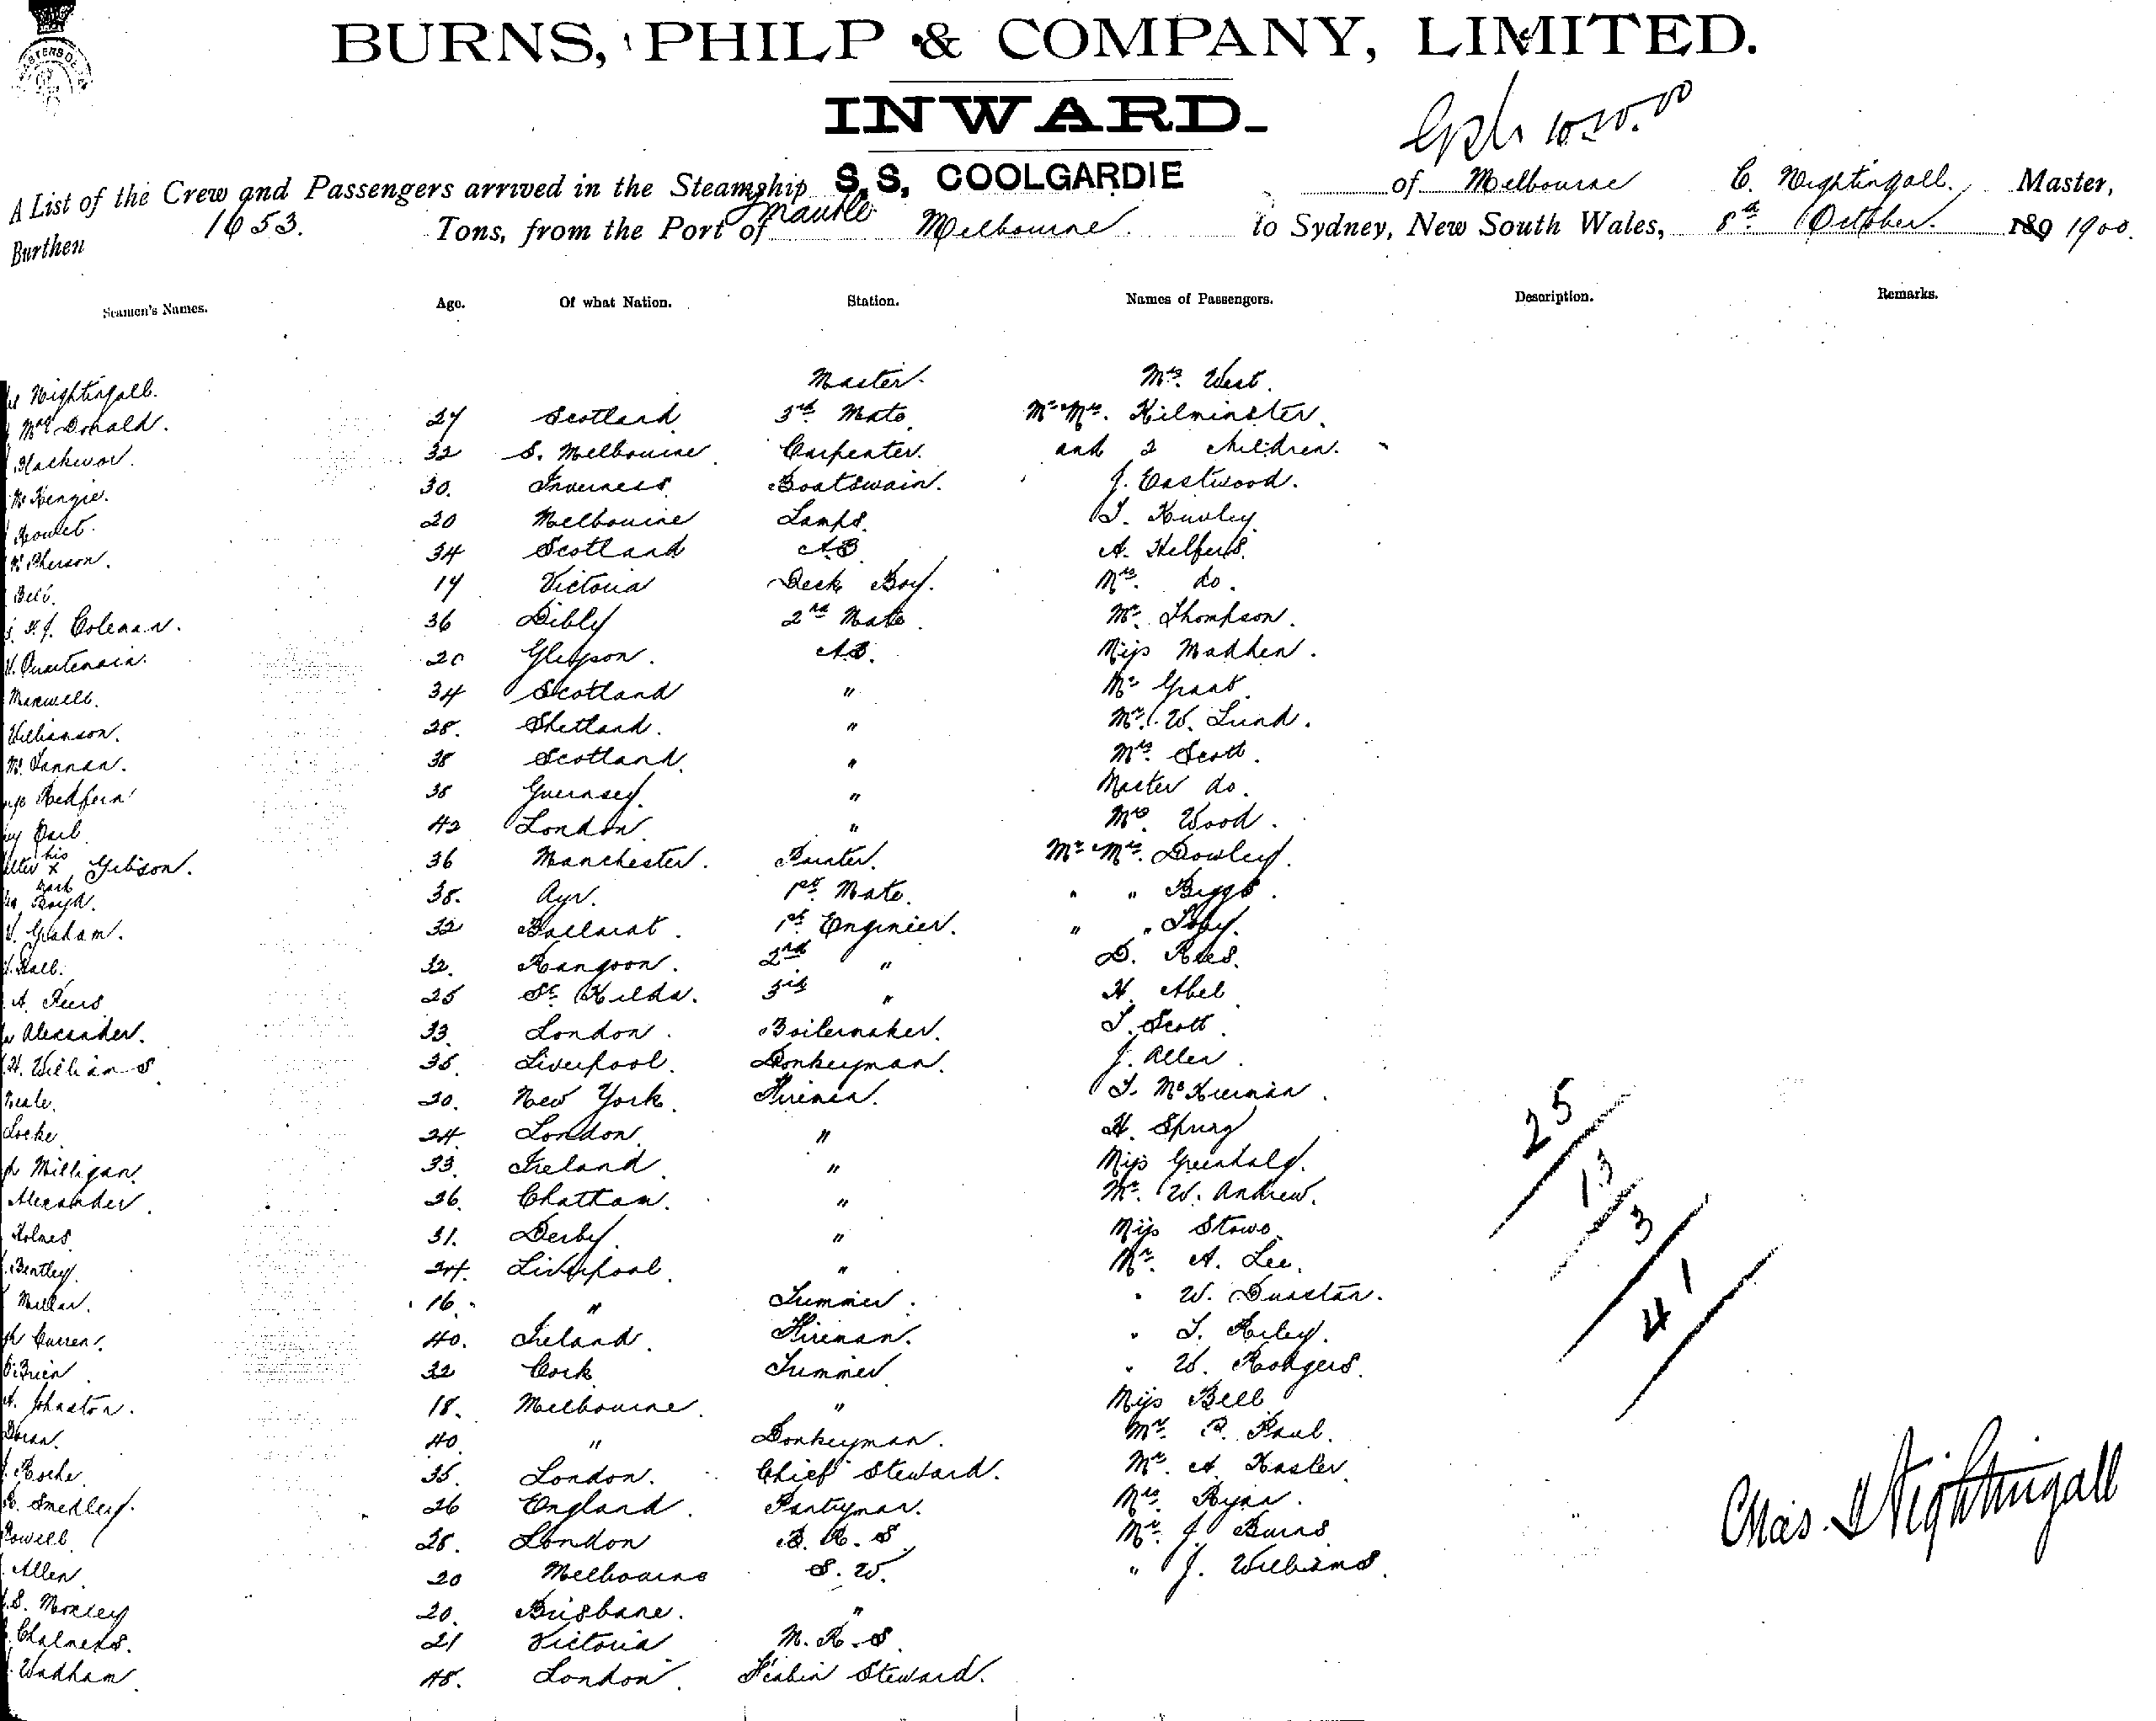 BURNS, PHILP & COMPANY, LIMITED.
INWARD.
A List of the Crew and Passengers arrived in the Steamship S.S. COOLGARDIE of Melbourne C. Nightingall. Master,
Burthen 1653. Tons, from the Port of Melbourne. to Sydney, New South Wales, 8th October. 189 1900.
Seamen's Names. Age. Of what Nation. Station. Names of Passengers. Description. Remarks.
Nightingall. Master. Mrs. West.
McDonald. 27 Scotland 3rd Mate Mr Mrs. Kilminster.
32 S. Melbourne Carpenter. and 2 children.
McKenzie. 30. Inverness Boatswain. J. Eastwood.
20 Melbourne Lamps.
McPherson. 34 Scotland AB A.
Bell. Victoria Deck Boy. Mrs. do.
Coleman. 36 2nd Mate. Mr. Thompson.
20 AB. Miss Madden.
Maxwell. 34 Scotland " Mr Grant
Williamson. 28. Shetland. " Mr. W. Lund.
McLennan. 38 Scotland. " Mrs Scott.
Redfern 38 Guernsey. " Master do.
42 London " Mrs. Wood.
his x mark Gibson. 36 Manchester. Mr Mrs. Dowley.
Boyd. 38. Ayr. 1st Mate. " " Biggs.
Graham. 32 Ballarat. 1st Engineer. " "
Hall. 32. Rangoon. 2nd " D. Rees.
A. 25 St. Kilda. 3rd " H. Abel
Alexander. 33 London. Boilermaker. T. Scott
H. Williams 35. Liverpool. Donkeyman. J. Allen.
Neale. 20. New York. Fireman. T. McKiernan.
Locke 24 London " H. Spurg
Milligan. 33. Ireland " Miss Greenhalg.
Alexander. 26. Chatham. " Mr. W. Andrew.
Holmes 31. Derby. " Miss Stowe
Bentley. 24. Liverpool. " Mr. A. Lee.
Millar. 16. " Trimmer. " W. Dunstan.
Curren. 40. Ireland. Fireman. " T. Riley.
O'Brien 32 Cork Trimmer " W. Rodgers.
Johnston. 18. Melbourne. " Miss Bell
Doran. 40 " Donkeyman. Mr. P. Paul.
Roche. 35. London. Chief Steward. Mr. A.
Smedley. 26 England. Pantryman. Mrs. Ryan.
Powell. 28. London B. R. S. Mr. J. Burns
Allen. 20 Melbourne S. W. " J. Williams.
S. Morley 20. Brisbane. "
Chalmers. 21 Victoria M. R. S.
Wadham. 48. London. F Cabin Steward.
25
13
3
41
Chas. Nightingall